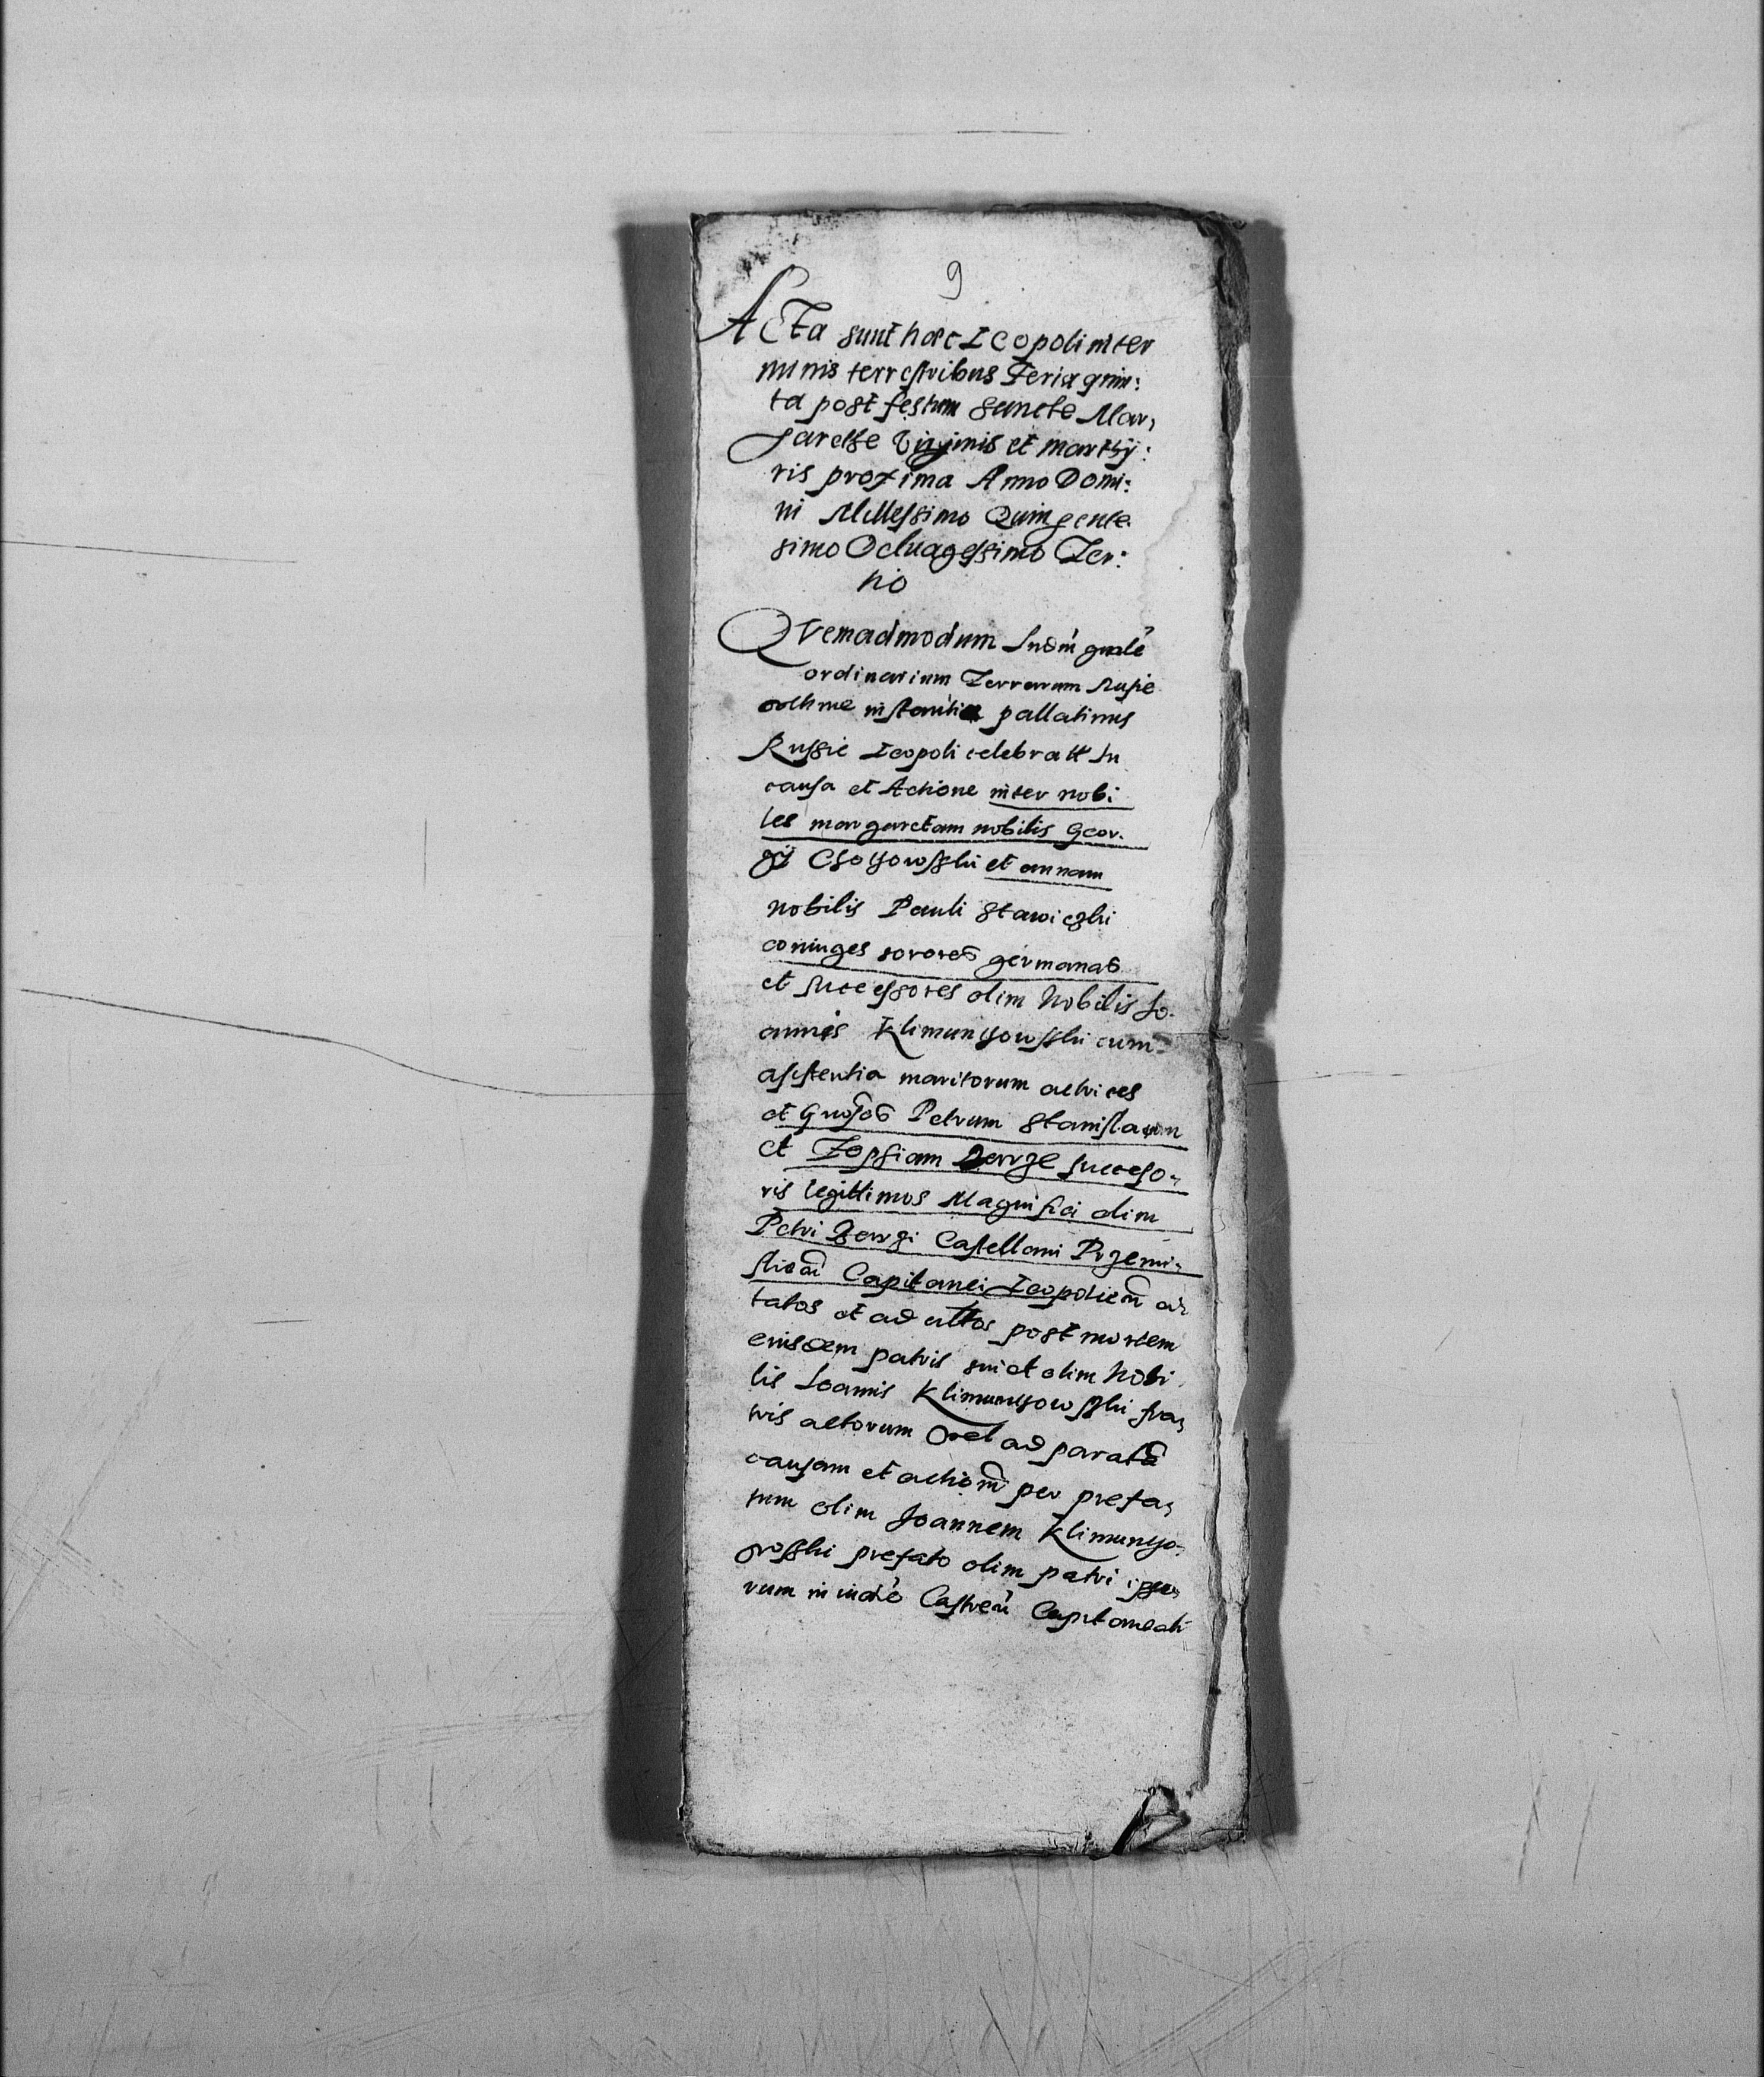 9
Acta sunt haec Leopoli in ter
minis terrestribus Feria quin:
ta post festum Sancte Mar,
garethe Virginis et marthy:
ris proxima Anno Domi:
ni Millessimo Quingente
simo Octuagessimo Ter:
tio
Quemadmodum Iudm gnale
ordinarium Terrarum Rusie
ad instantia pallatinus
Russie Leopoli celebratt In
causa et Actione inter nobi
les margaretam nobilis Geor.
gÿ et annam
nobilis Pauli Stawiczki
coniuges sorores germanas
et successores olim Nobilis Jo.
annis Klimunthowsski cum
assistentia maritorum actrices
et Gnosos Petrum Stanislaum
et Zophiam Barze successo,
ris legittimos Magnifici olim
Petri Barzi Castellani Przemi,
slien Capitanei Leopolien ci
tatos et ad ultos post mortem
eiusdem patris sui et olim Nobi
lis Joannis Klimuntowski fra,
tris actorum ad parata
causam et actiom per prefa,
tum olim Joannem Klimunto,
wsski prefato olim patri ipso,
rum in iudio Castren Capitaneali